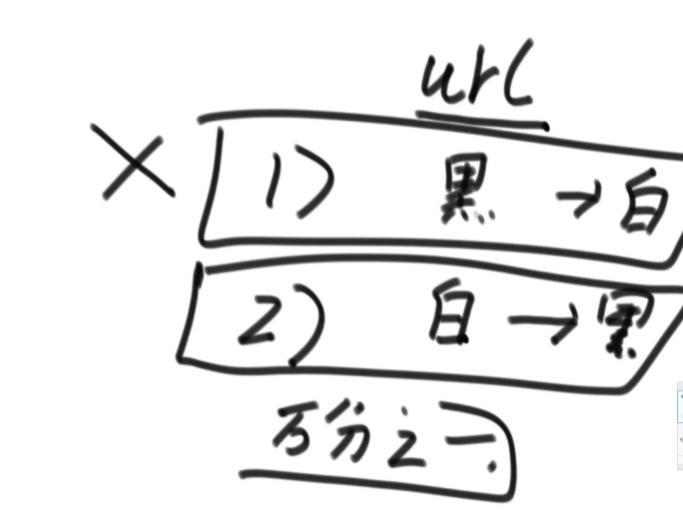 url
× 1) 黑 → 白
2) 白 → 黑
万分之一